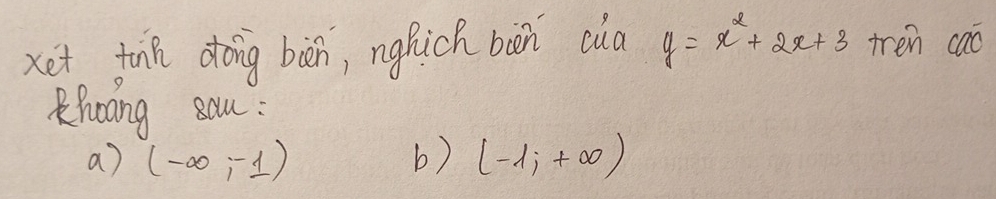 xét tính đồng biến, nghịch biến của y = x² + 2x + 3 trên các
khoảng sau:
a) (-∞; -1) b) (-1; +∞)